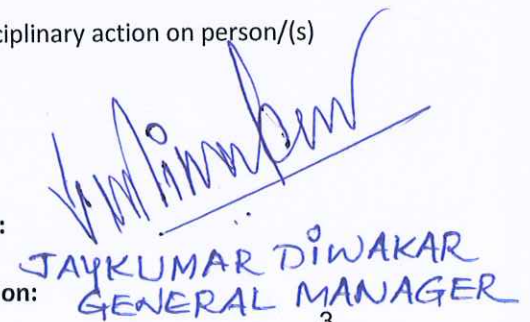 ciplinary action on person/(s)
:
JAYKUMAR DIWAKAR
on: GENERAL MANAGER
3